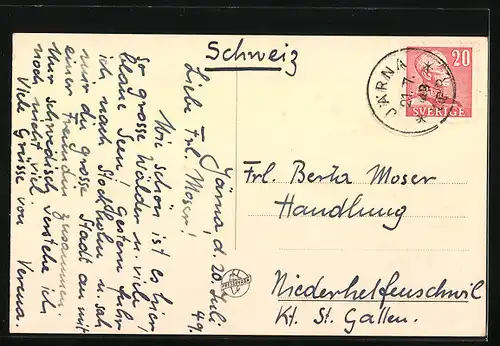 Järna, d. 20. Juli 49.
Liebe Frl. Moser!
Wie schön ist es hier,
so grosse Wälder u. viele
blaue Seen! Gestern fuhr
ich nach Stockholm u. sah
mir die grosse Stadt an mit
einer Freundin zusammen.
Nur schwedisch verstehe ich
noch nicht viel.
Viele Grüsse von Verena.
Schweiz
JÄRNA
21.7.
49
20
SVERIGE
Frl. Berta Moser
Handlung
Niederhelfenschwil
Kt. St. Gallen.